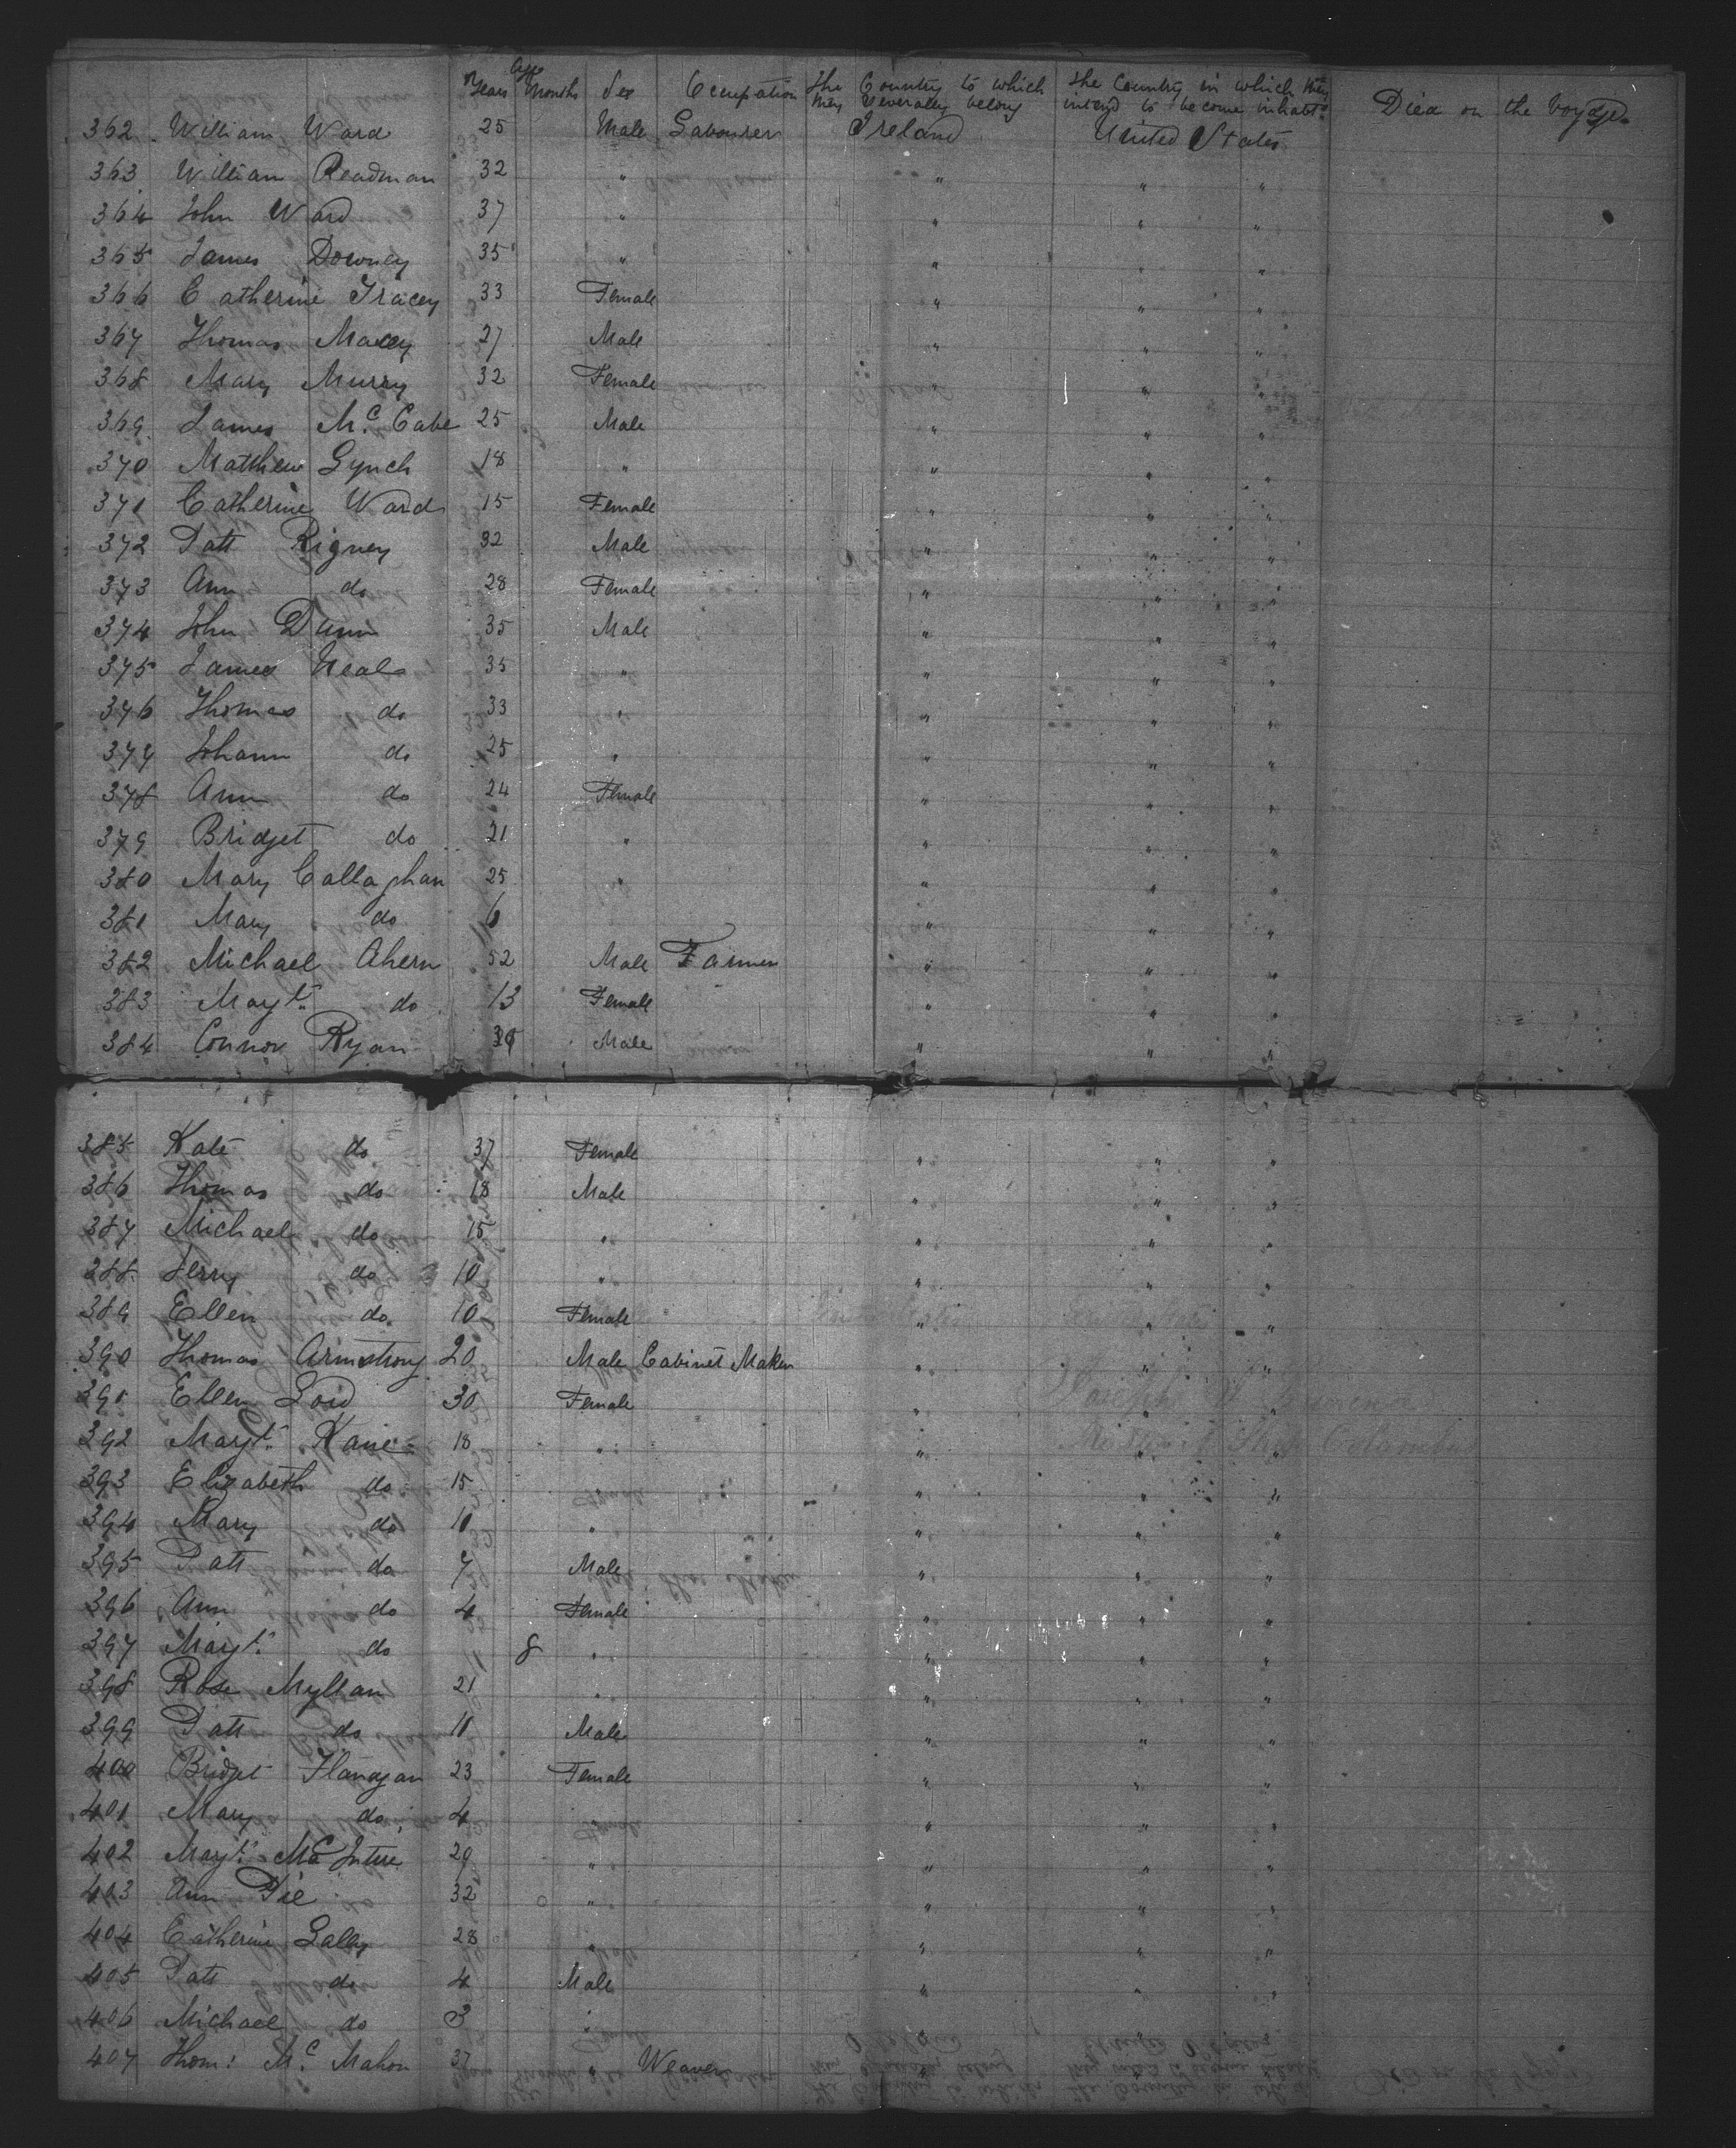 Age
Years Months Sex Occupation The Country to which they severally belong The Country in which they intend to become inhabts. Died on the Voyage
362 William Ward 25 Male Labourer Ireland United States
363 William Readman 32 " " " "
364 John Ward 37 " " " "
365 James Downey 35 " " " "
366 Catherine Tracey 33 Female " " "
367 Thomas 27 Male " " "
368 Mary Murry 32 Female " " "
369 James Mc. Cabe 25 Male " " "
370 Matthew Lynch 18 " " " "
371 Catherine Ward 15 Female " " "
372 Patt Rigney 32 Male " " "
373 Ann do 28 Female " " "
374 John Dunn 35 Male " " "
375 James Neal 35 " " " "
376 Thomas do 33 " " " "
377 Johann do 25 " " " "
378 Ann do 24 Female " " "
379 Bridget do 21 " " " "
380 Mary Callaghan 25 " " " "
381 Mary do 6 " " "
382 Michael Ahern 52 Male Farmer " " "
383 Margt. do 13 Female " " "
384 Connor Ryan Male " " "
385 Kate do 37 Female " " "
386 Thomas do 18 Male " " "
387 Michael do 15 " " " "
388 Jerry do 10 " " " "
389 Ellen do 10 Female " " "
390 Thomas Armstrong 20 Male Cabinet Maker " " "
391 Ellen Loid 30 Female " " "
392 Margt. Kane 18 " " " "
393 Elizabeth do 15 " " "
394 Mary do 10 " " " "
395 Patt do 7 Male " " "
396 Ann do 4 Female " " "
397 Margt. do 8 " " " "
398 Rose Myllan 21 " " " "
399 Patt do 10 Male " " "
400 Bridget Flanagan 23 Female " " "
401 Mary do 4 " " " "
402 Margt. Mc Intire 29 " " " "
403 Ann 32 " " " "
404 Catherine Lally 28 " " " "
405 Patt do 4 Male " " "
406 Michael do 3 "
407 Thom: Mc. Mahon 37 " Weaver "